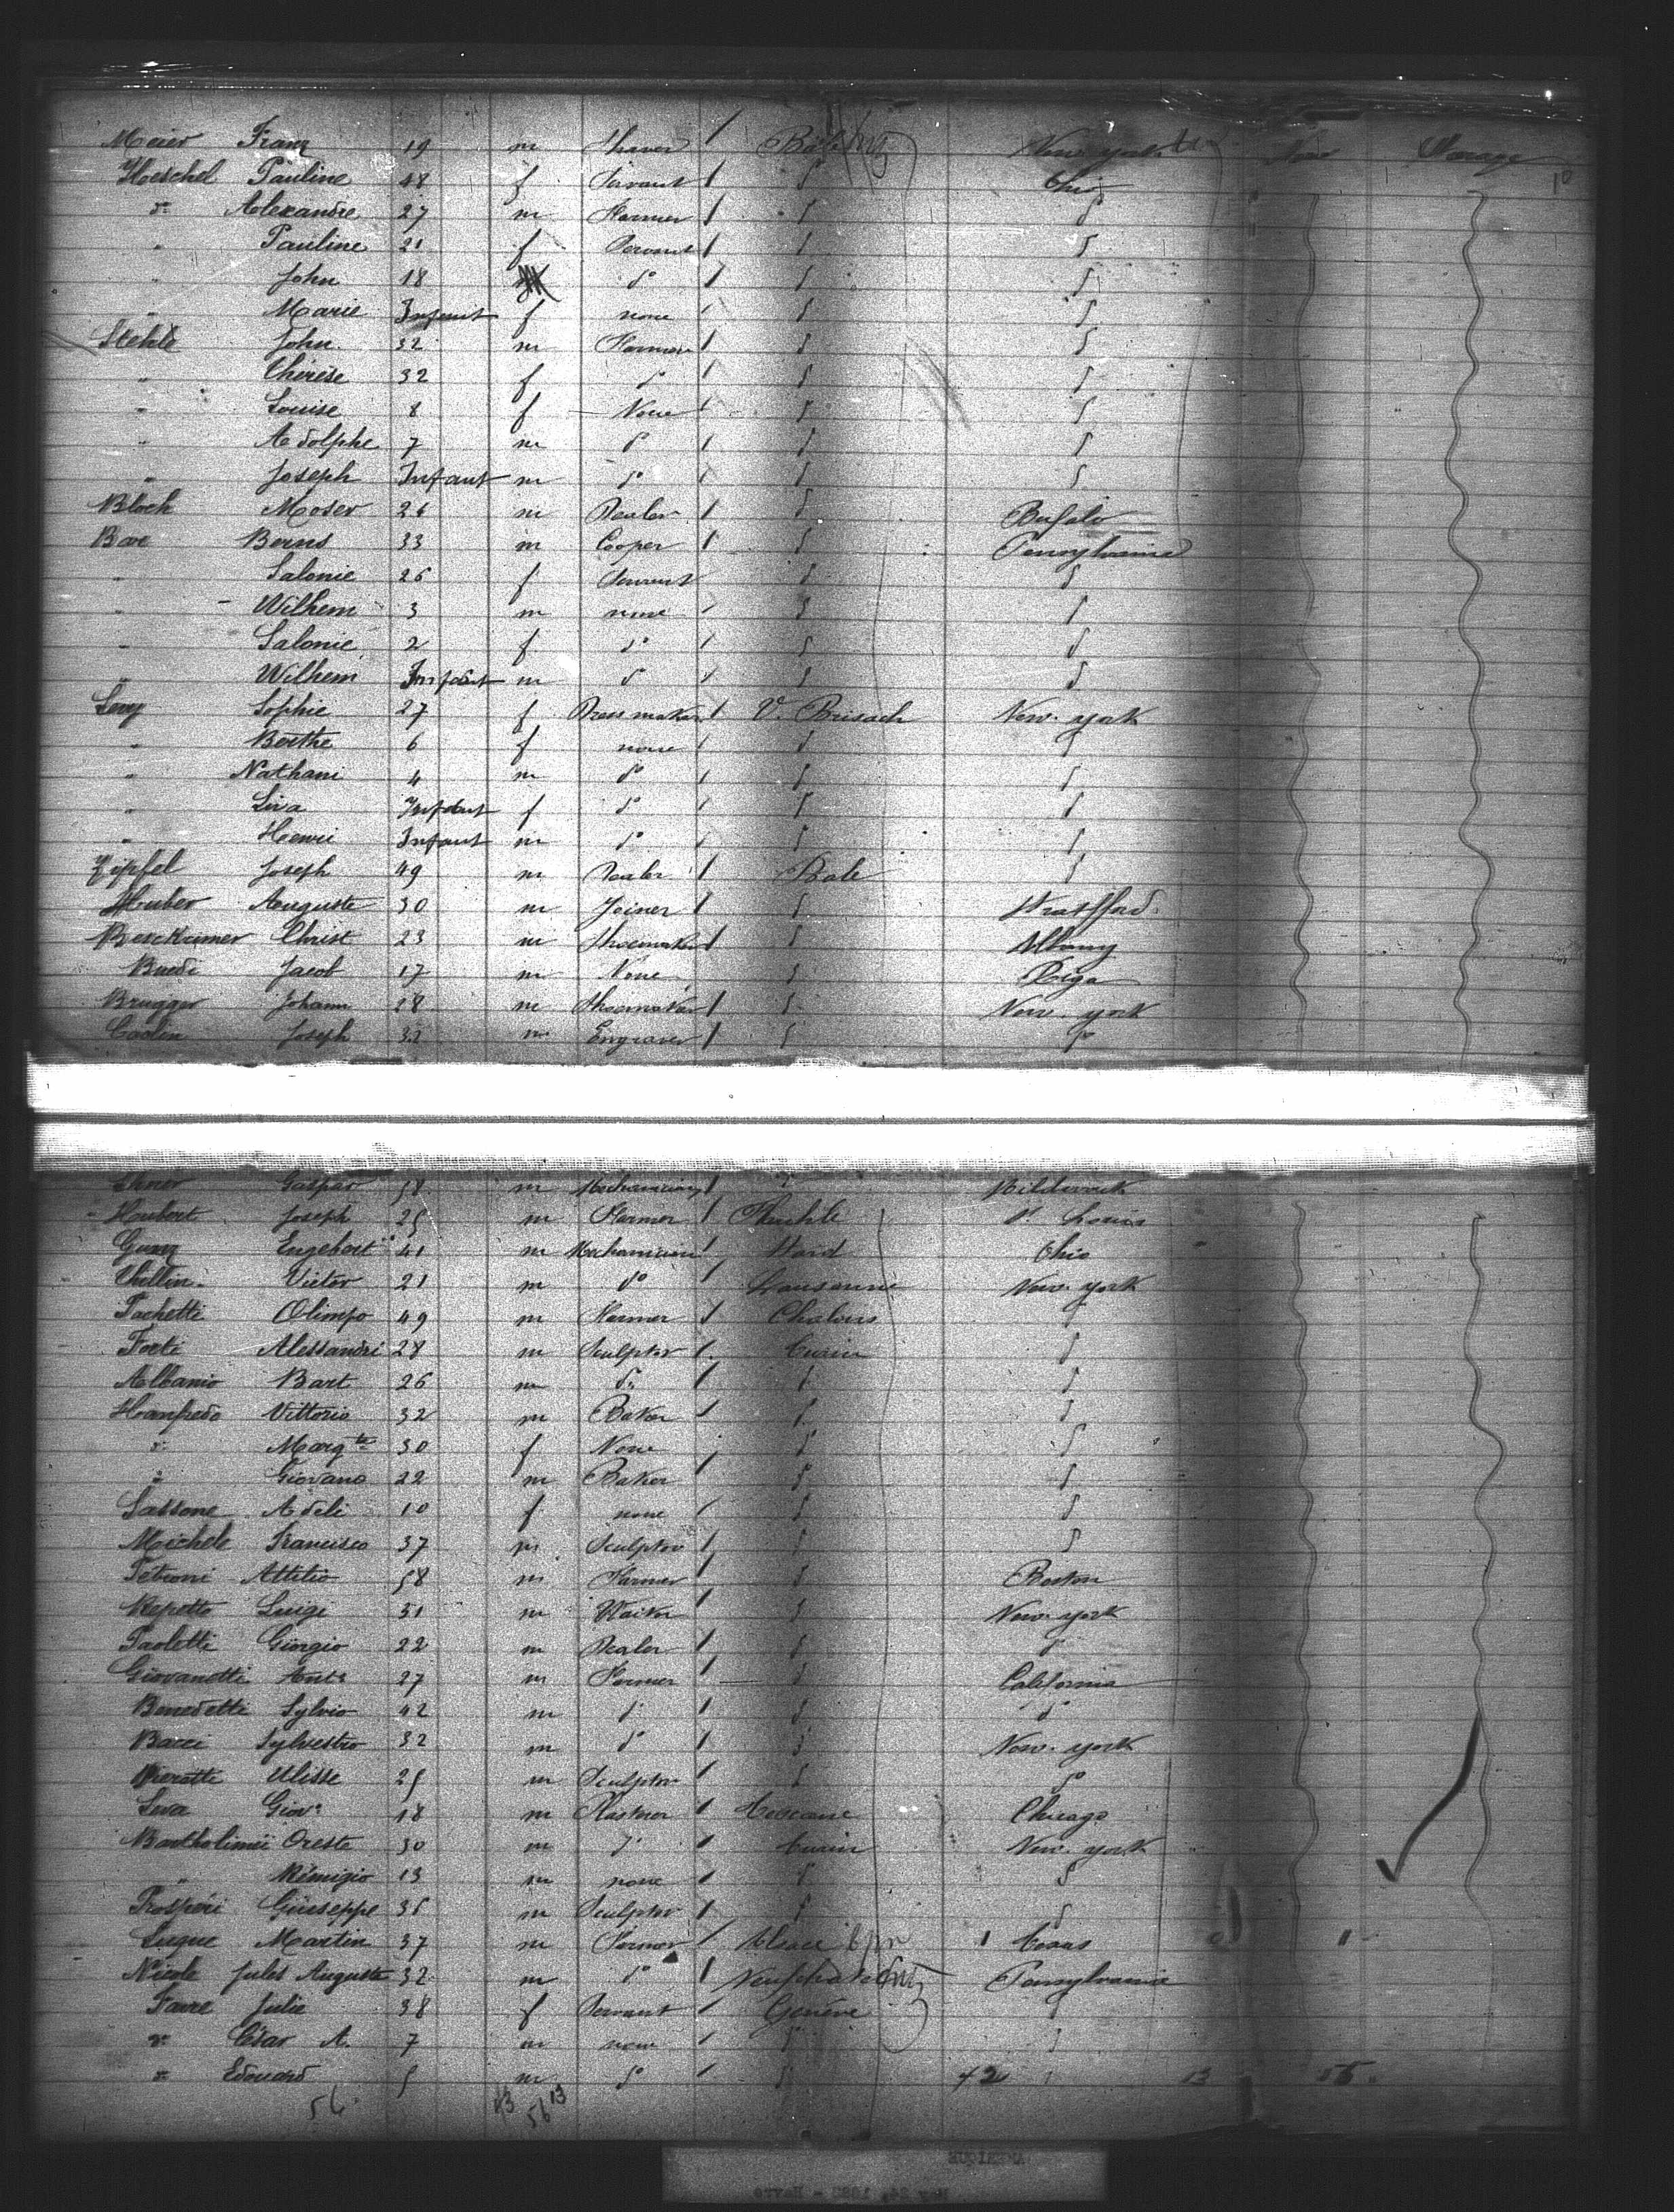 Meier Franz 19 m Shaver / Bâle New york None Storage
Hoeschel Pauline 48 f Servant / d° Ohio
d° Alexandre 27 m Farmer / d° d°
" Pauline 21 f Servant / d° d°
" John 18 d° / d° d°
" Marie Infant f none / d° d°
Stehlé John 32 m Farmer / d° d°
" Thérèse 32 f d° / d° d°
" Louise 8 f None / d° d°
" Adolphe 7 m d° / d° d°
" Joseph Infant m d° / d° d°
Bloch Moser 26 m Dealer / d° Bufalo
Bae Berns 33 m Cooper / d° Pensylvania
" Salonie 26 f Servant d° d°
" Wilhem 3 m none / d° d°
" Salonie 2 f d° / d° d°
" Wilhem Infant m d° / d° d°
Levy Sophie 27 f Dressmaker / V. Brisach New-york
" Berthe 6 f none / d° d°
" Nathani 4 m d° / d° d°
" Liva Infant f d° / d° d°
" Henri Infant m d° / d° d°
Zipfel Joseph 49 m Dealer / Bale d°
Huber Auguste 30 m Joiner / d° Stratfford
Christ 23 m Shoemaker / d° Albany
Buedi Jacob 17 m None d° Riga
Brugger Johann 28 m Shoemaker / d° New-york
Joseph 32 m Engraver / d° d°
Gaspar 58 m Mechanician / d°
Houbert Joseph 25 m Farmer / St. Louis
Engebert 41 m Mechanician / Hard Ohio
Victor 21 m d° / Lausanne New-york
Pachetti Olimpo 49 m Farmer / Chalons d°
Forti Alessandri 28 m Sculptor / Turin d°
Albanio Bart 26 m d° / d° d°
Hanfredo Vittorio 32 m Baker / d° d°
d° Margte 30 f None / d° d°
" Giovano 22 m Baker / d° d°
Sassone Adeli 10 f none / d° d°
Michele Francisco 37 m Sculptor / d° d°
Petroni Attilio 58 m Farmer / d° Boston
Repetto Luigi 51 m Waiter / d° New-york
Paoletti Giorgio 22 m Dealer / d° d°
Giovanetti Anto 27 m Farmer / d° California
Benedetti Sylvio 42 m d° / d° d°
Bacci Sylvestro 32 m d° / d° New-york
Pierotti Ulisse 25 m Sculptor / d° d°
Leva Giov° 18 m Plastner / Toscane Chicago
Bartholimeï Oreste 30 m d° / Turin New-york
" Rémigio 13 m none / d° d°
Prosperi Giuseppe 35 m Sculptor / d° d°
Lugue Martin 37 m Farmer / Alsace 1 Texas
Nicole Jules Auguste 32 m d° / Neufchatel Pensylvania
Favre Julie 38 f Servant / Genève d°
d° César A. 7 m none / d° d°
d° Edouard 5 m d° / d° 42 13 55
56 43 56 13